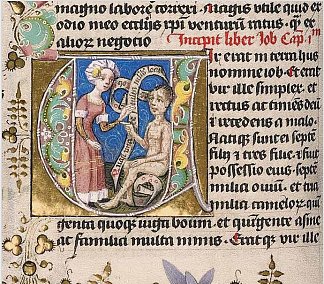 magno labore correxi. Magis utile quid ex
odio meo eccłijs xpi venturum ratus. qͣ ex
alior negotio Incipit liber Iob Cap. jᵐ
Uir erat in terra hus
nomine iob. Et erat
vir ille simplex. et
rectus ac timens deū
et recedens a malo.
Natique sunt ei septē
filij et tres filie. et fuit
possessio eius. septē
milia ouiū. et tria
milia camelor. quī
genta quoque iuga boum. et quīgente asine
ac familia multa nimis. Eratque vir ille